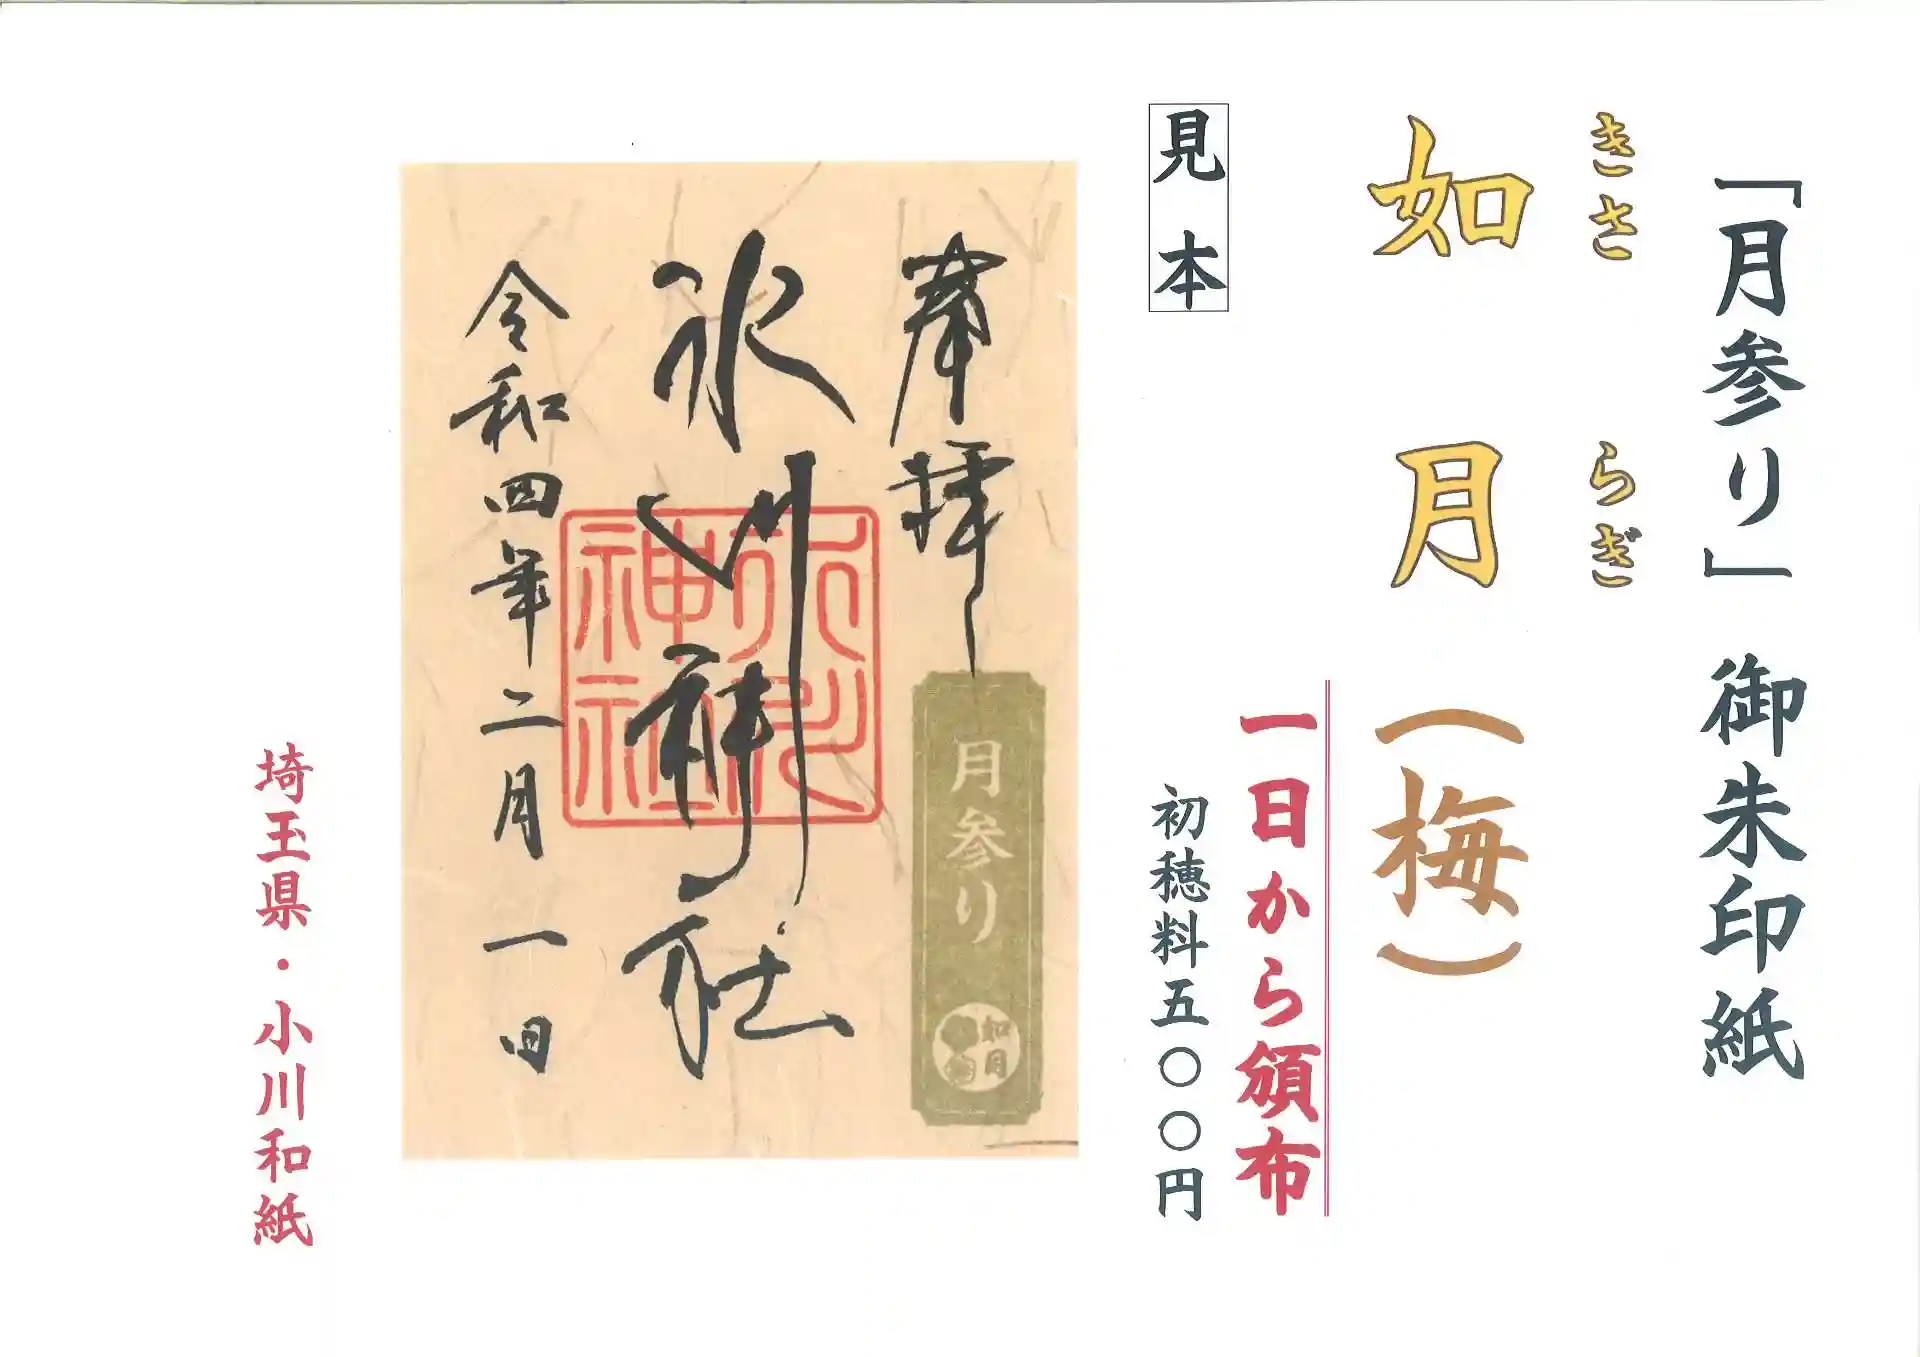 「月参り」御朱印紙
きさらぎ
如月(梅)
一日から頒布
見本
初穂料五〇〇円
奉拝
月参り
如月
氷川神社
氷川神社
令和四年二月一日
埼玉県・小川和紙